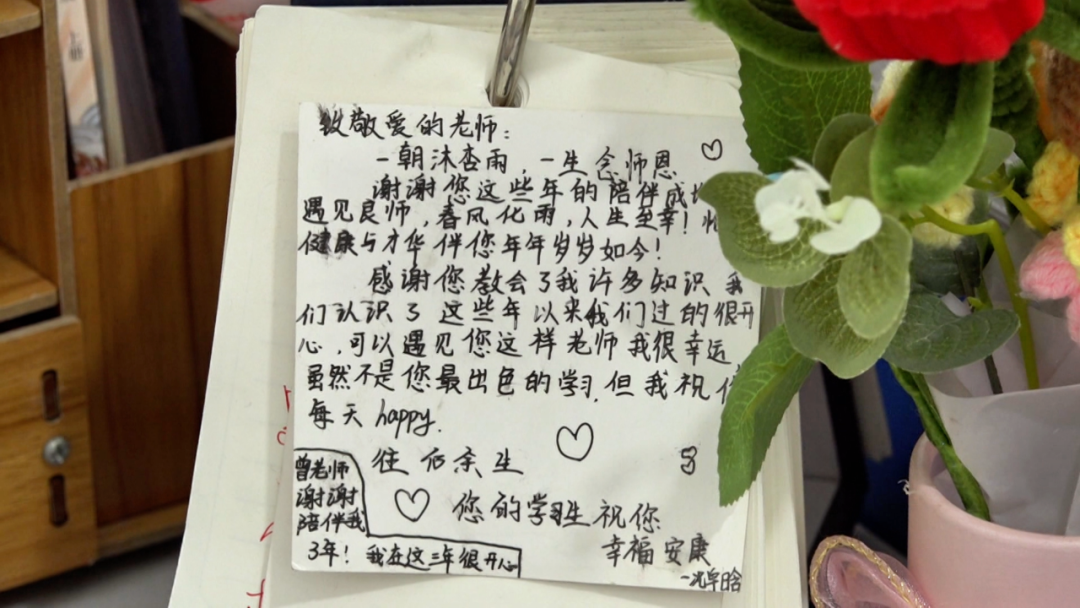 致敬爱的老师：
一朝沐杏雨，一生念师恩
谢谢您这些年的陪伴成
遇见良师，春风化雨，人生至幸！
健康与才华伴您年年岁岁如今！
感谢您教会了我许多知识 我
们认识了 这些年以来我们过的很开
心，可以遇见您这样老师我很幸运
虽然不是您最出色的学习，但我祝
每天happy.
往后余生
您的学生祝您
幸福安康
曾老师
谢谢
陪伴我
3年！我在这三年很开心